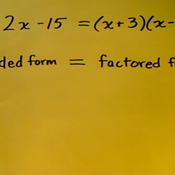 2x-15 = (x+3)(x-
ded form = factored f